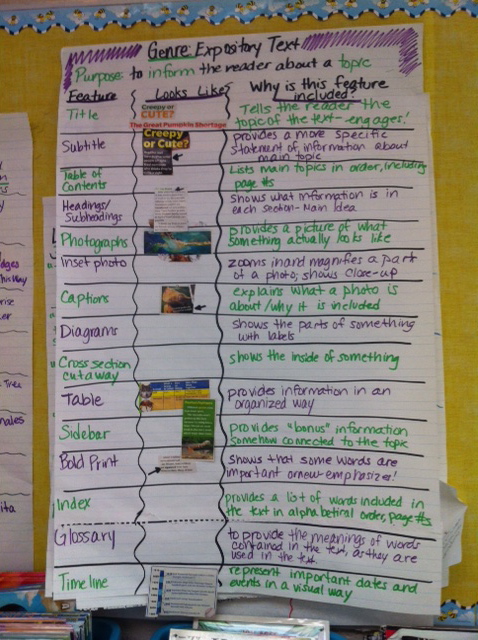 Genre: Expository Text
Purpose: to inform the reader about a topic
Feature
Looks Like
Why is this feature
included?
Title
Creepy or
CUTE?
The Great Pumpkin Shortage
Tells the reader the
topic of the text-engages!
Subtitle
Creepy
or Cute?
provides a more specific
statement of information about
main topic
Table of
Contents
Lists main topics in order, including
page #s
Headings/
Subheadings
shows what information is in
each section-Main Idea
Photographs
provides a picture of what
something actually looks like
Inset photo
zooms in and magnifies a part
of a photo; shows close-up
Captions
explains what a photo is
about/why it is included
Diagrams
shows the parts of something
with labels
Cross section
cutaway
shows the inside of something
Table
provides information in an
organized way
Sidebar
provides "bonus" information
somehow connected to the topic
Bold Print
shows that some words are
important or new-emphasizes!
Index
provides a list of words included in
the text in alphabetical order, page #s
Glossary
to provide the meanings of words
contained in the text, as they are
used in the text.
Timeline
represent important dates and
events in a visual way